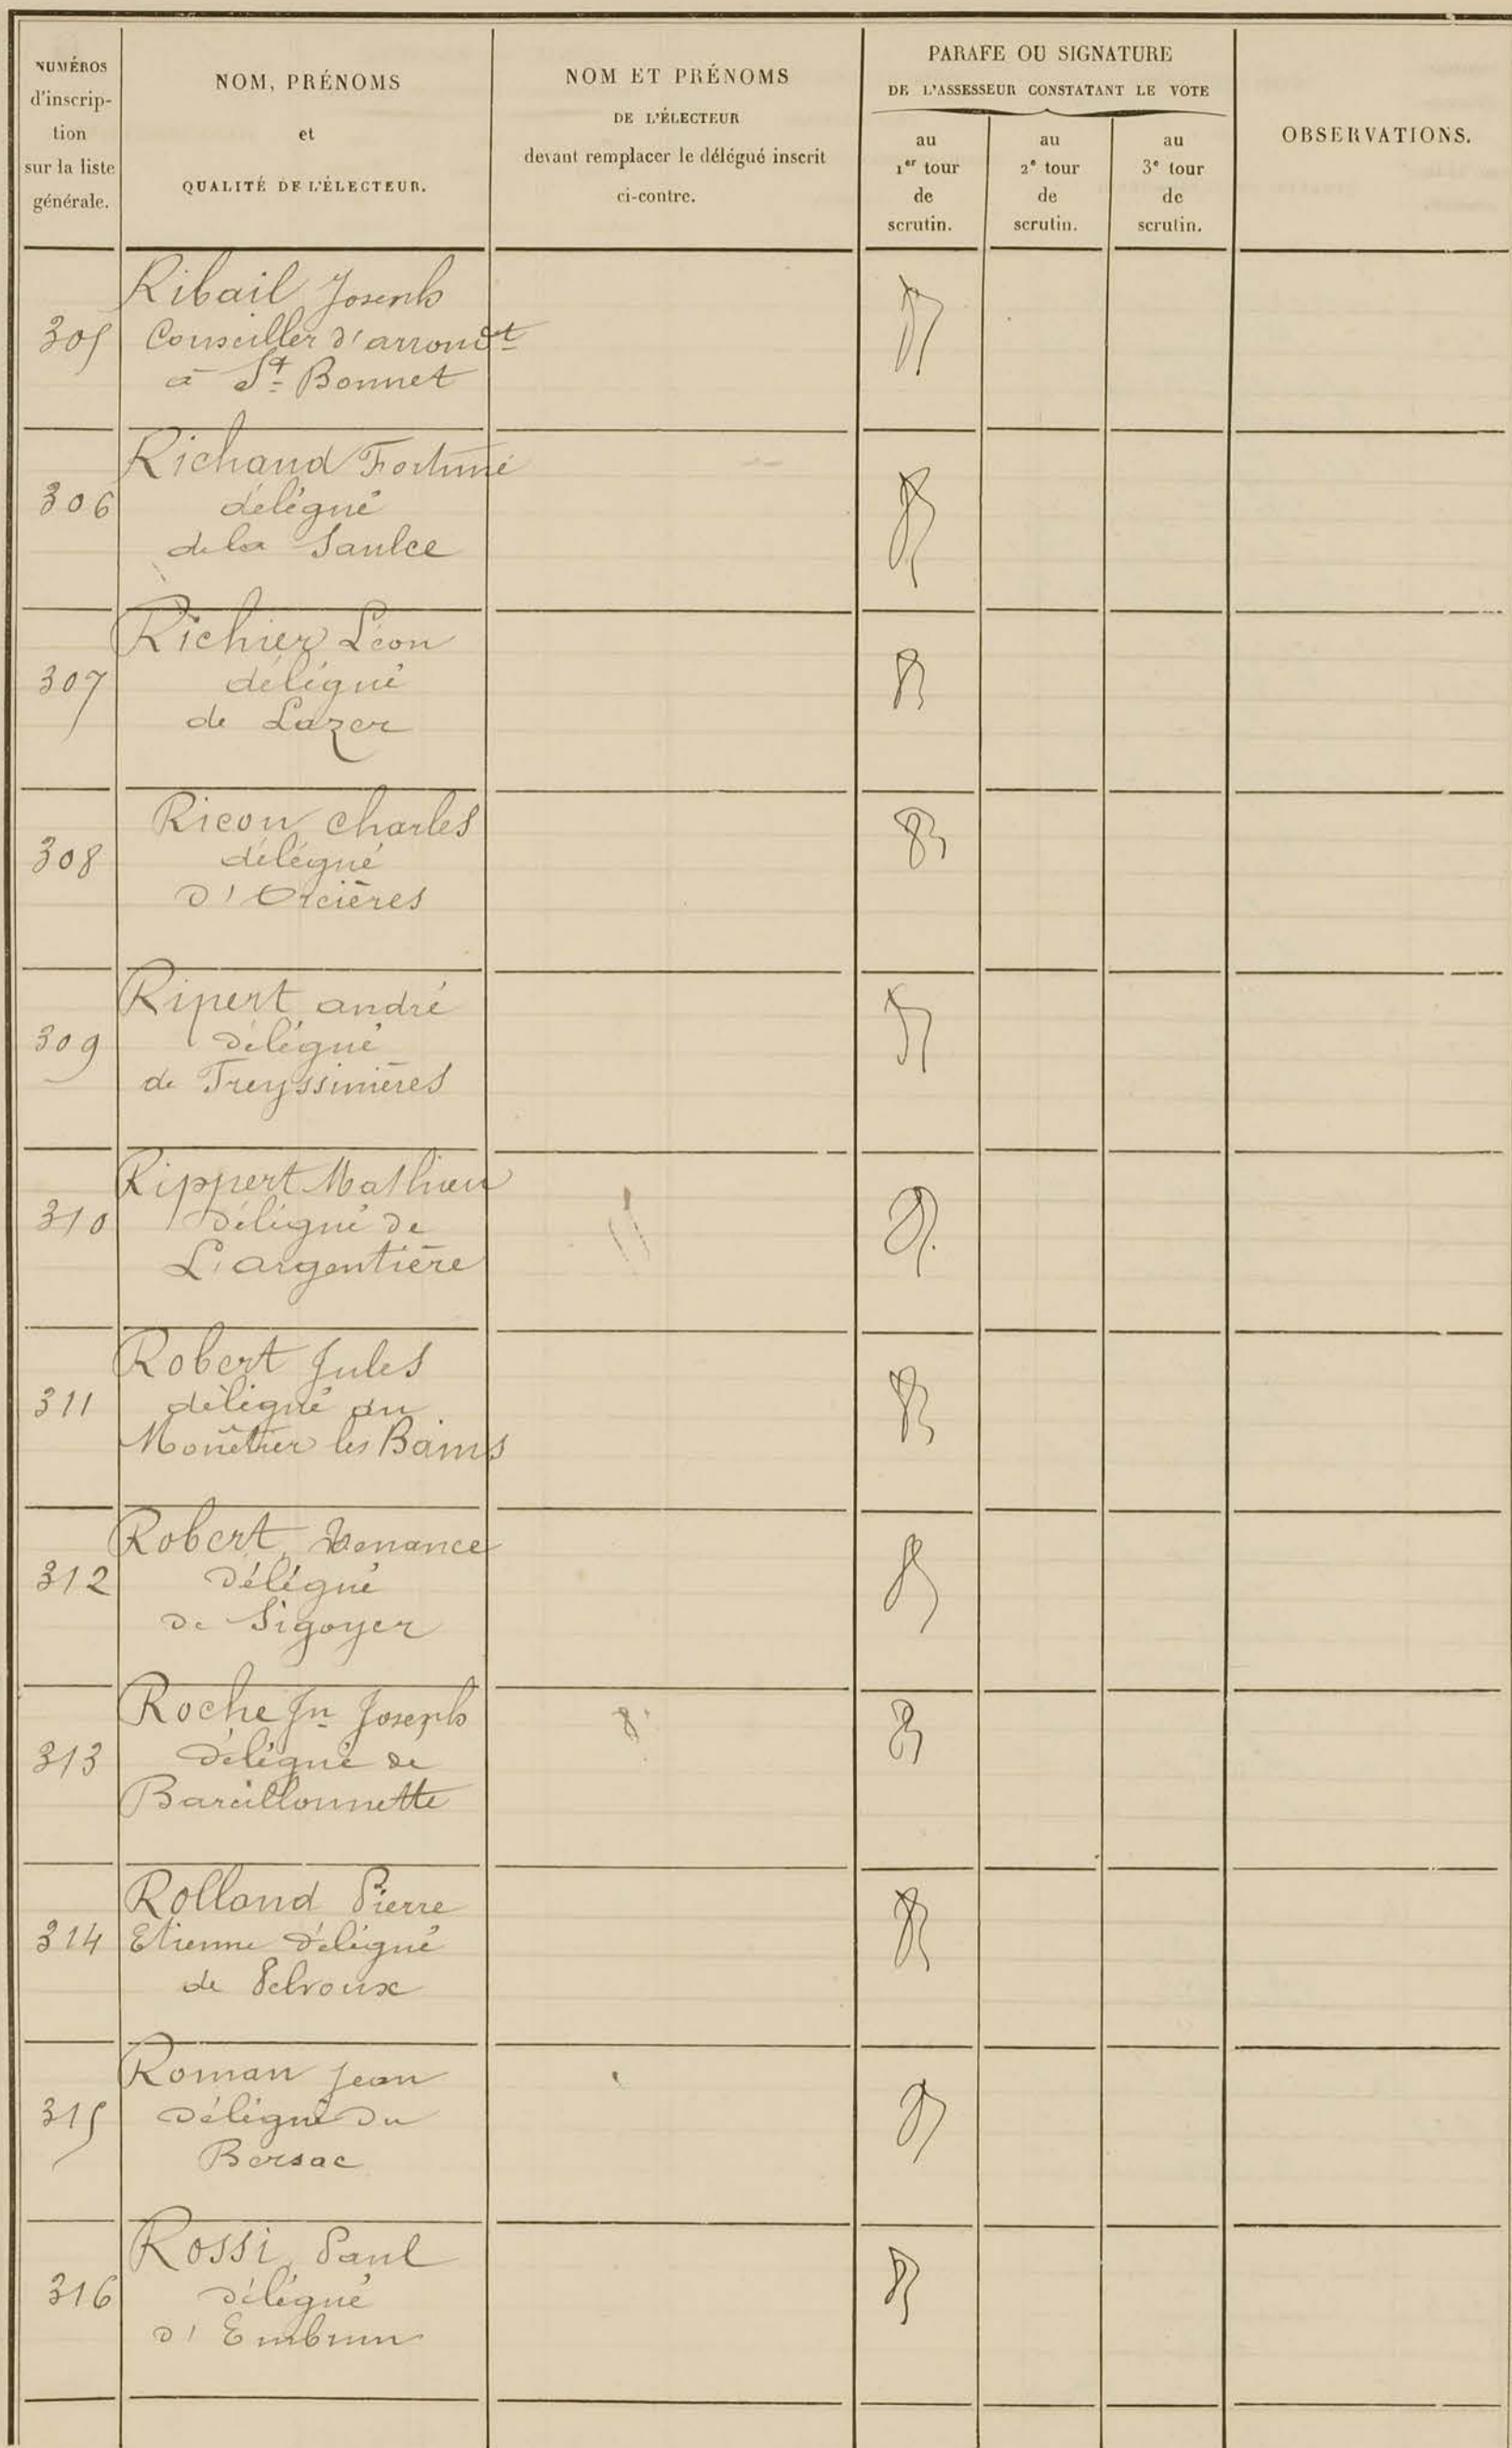 NUMÉROS
d'inscrip-
tion
sur la liste
générale.
NOM, PRÉNOMS
et
QUALITÉ DE L'ÉLECTEUR.
NOM ET PRÉNOMS
DE L'ÉLECTEUR
devant remplacer le délégué inscrit
ci-contre.
PARAFE OU SIGNATURE
DE L'ASSESSEUR CONSTATANT LE VOTE
au
1er tour
de
scrutin.
au
2e tour
de
scrutin.
au
3e tour
de
scrutin.
OBSERVATIONS.
Ribail Joseph
305 Conseiller d'arrondt
à St Bonnet
Richaud Fortuné
306 délégué
de la Saulce
Richier Léon
307 délégué
de Lazer
Ricou Charles
308 délégué
d'Orcières
Ripert andré
309 délégué
de Freyssinières
Rippert Mathieu
310 délégué de
L'argentière
Robert Jules
311 délégué du
Monêtier les Bains
Robert Venance
312 délégué
de Sigoyer
Roche Jn Joseph
313 délégué de
Barcillonnette
Rolland Pierre
314 Etienne délégué
de Pelvoux
Roman Jean
315 délégué du
Bersac
Rossi Paul
316 délégué
d'Embrun